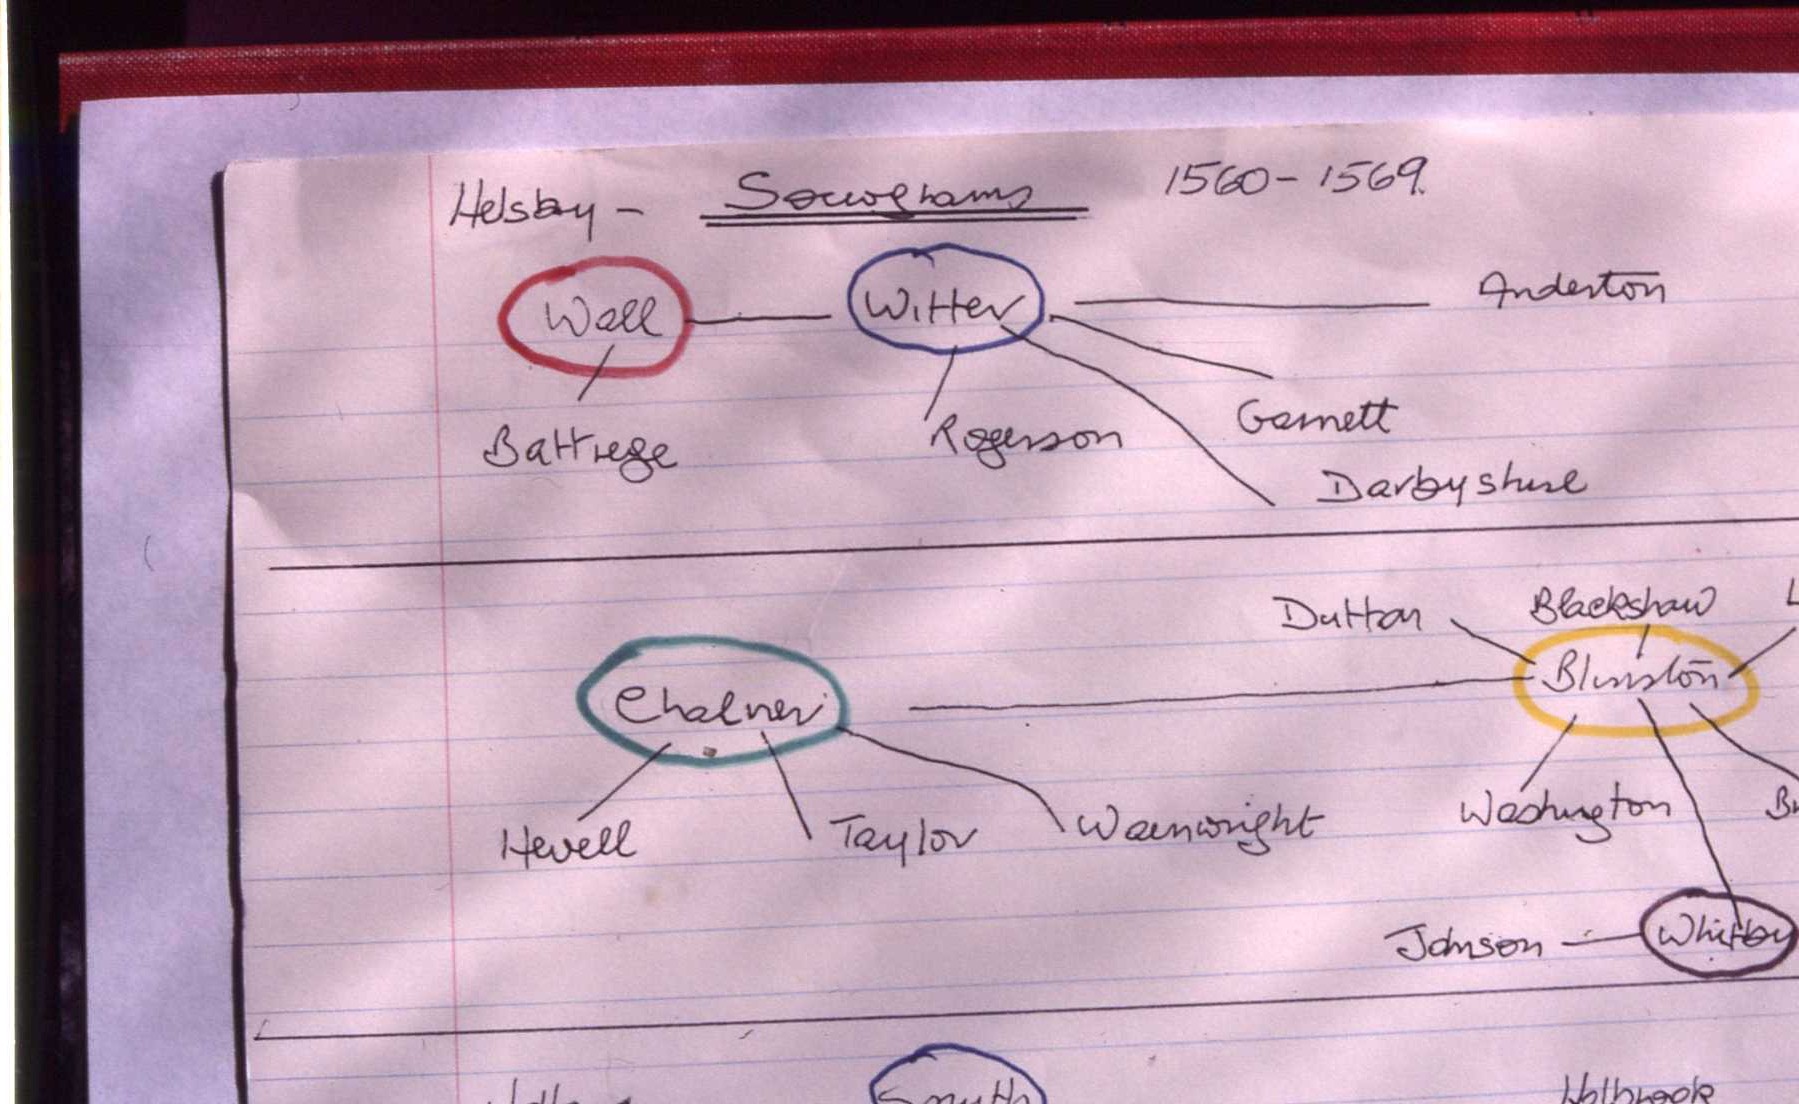 Helsby - Sociograms 1560-1569.
Wall Witter Anderton
Battrege Rogerson Garnett
Darbyshire
Dutton Blackshaw
Chalner Blinston
Hewell Taylor Wainwright Washington
Johnson Whitby
Smyth Holbrook